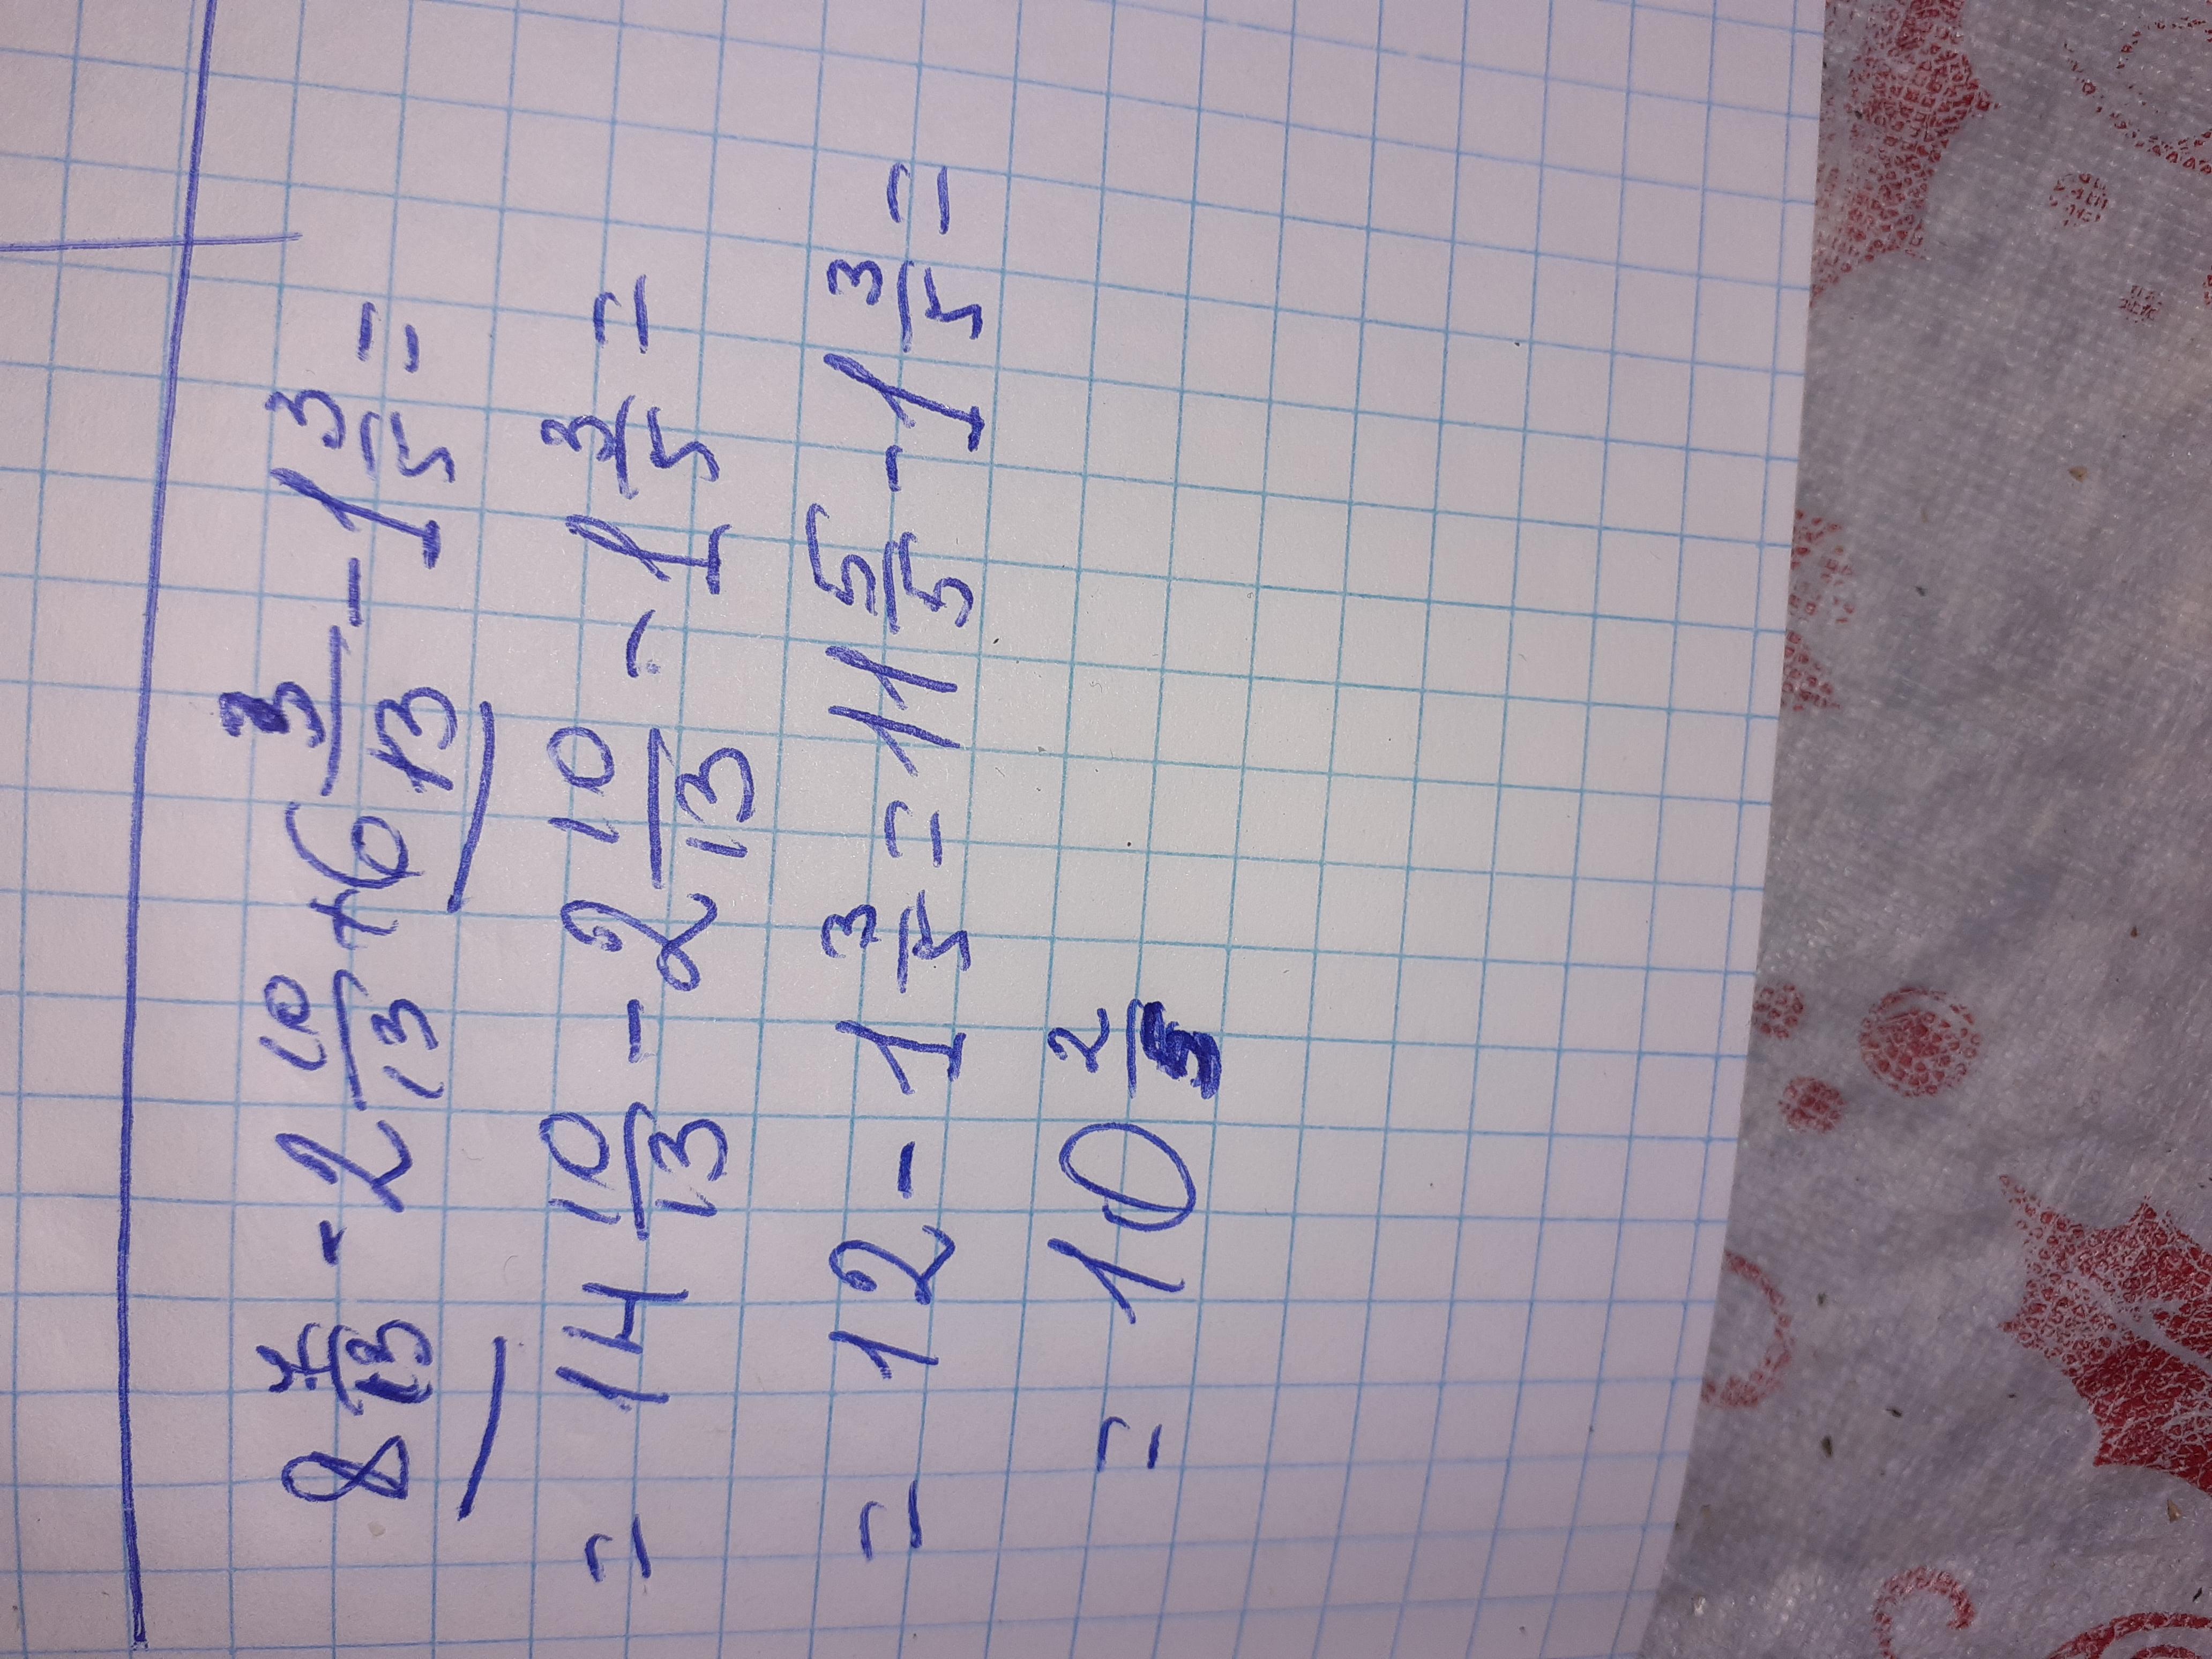 8 7/13 - 2 10/13 + 6 3/13 - 1 3/5 =
= 14 10/13 - 2 10/13 - 1 3/5 =
= 12 - 1 3/5 = 11 5/5 - 1 3/5 =
= 10 2/5